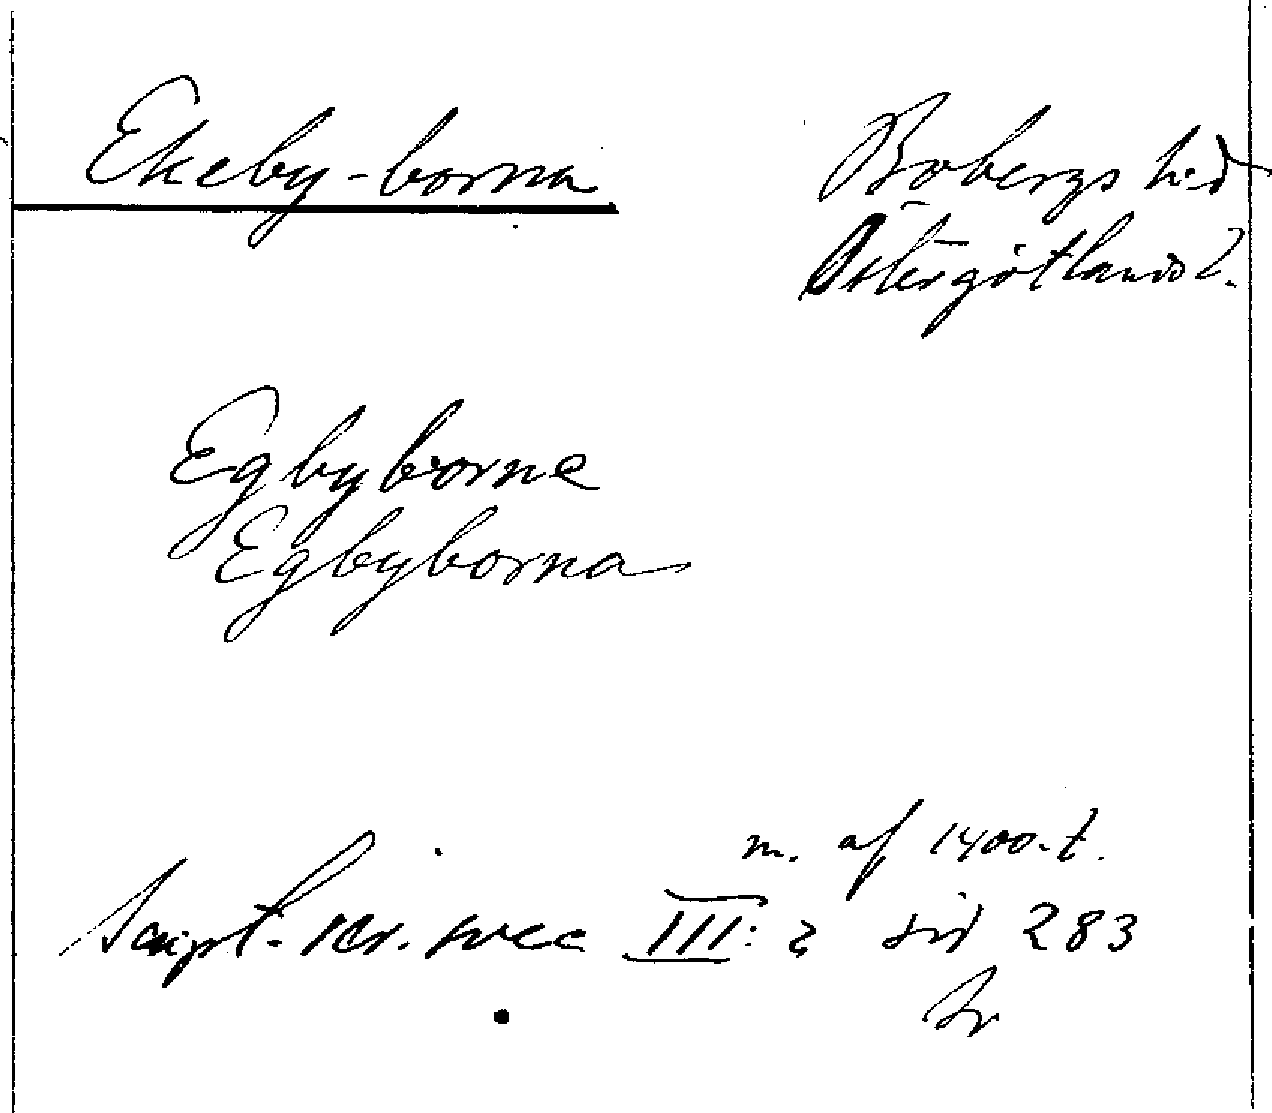 Ekeby-borna
Bobergs hd
Östergötlands l.
Egbyborne
Egbyborna
m. af 1400-t.
Script. rer. svec III: 2 sid 283